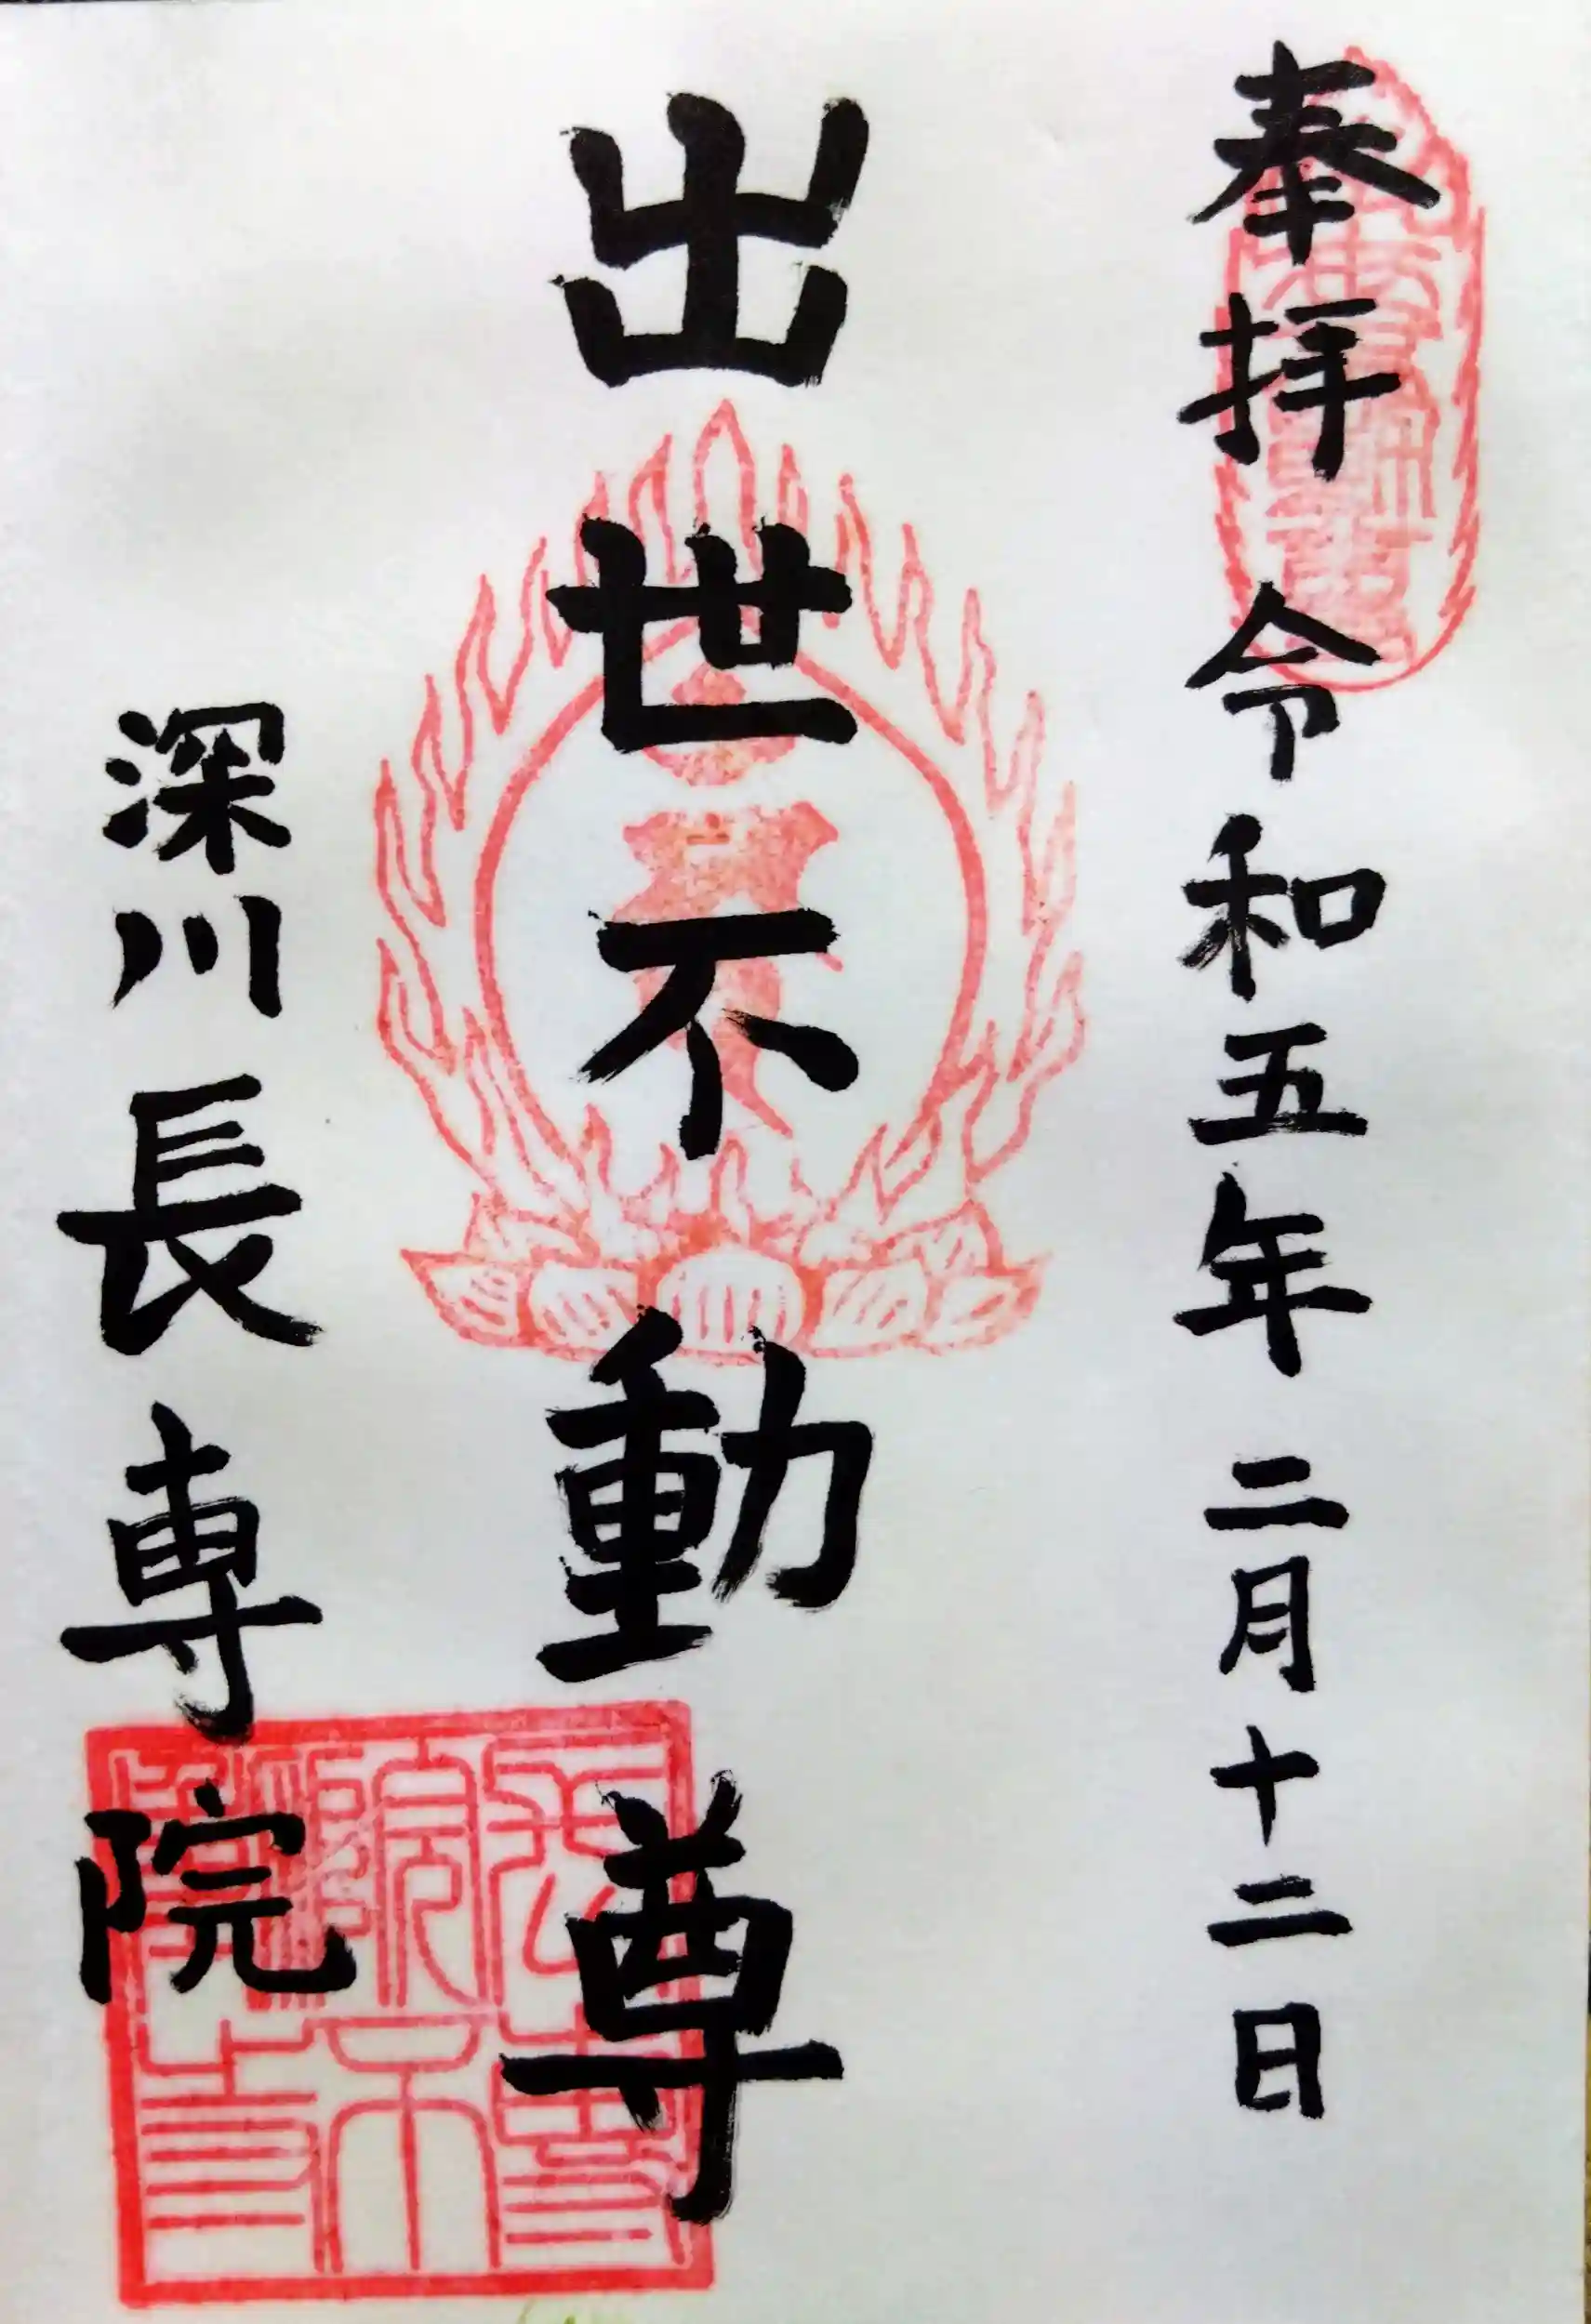 奉拝 令和五年 二月十二日
出世不動尊
深川長専院